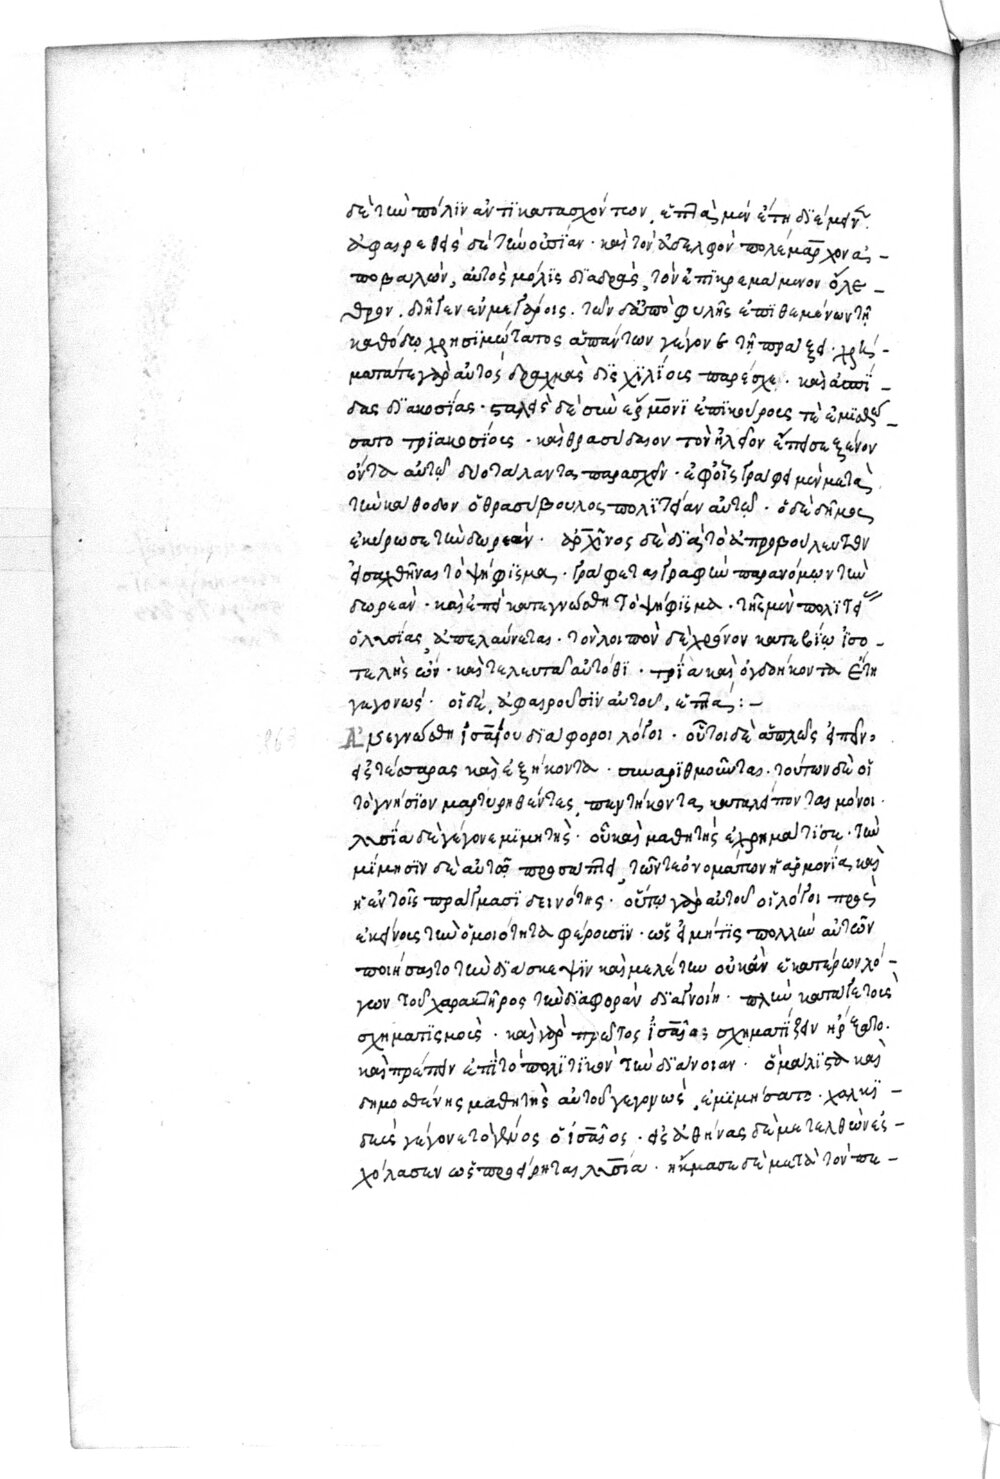 δὲ τὴν πόλιν ἀντικατασχόντων, ἑπτὰ μὲν ἔτη διέμειν
ἀφαιρεθεὶς δὲ τὴν οὐσίαν· καὶ τὸν ἀδελφὸν πολέμαρχον ἀ-
ποβαλὼν, αὐτὸς μόλις διαδρὰς, τὸν ἐπικρεμάμενον ὄλε-
θρον. διῆγεν ἐν μεγάροις. τῶν δ' ἀπὸ φυλῆς ἐπιθεμένων τῇ
καθόδω χρησιμώτατος ἁπάντων γέγονε τῇ πράξει· χρή-
ματά τε γὰρ αὐτὸς δραχμὰς δισχιλίους παρέσχε· καὶ ἀσπί-
δας διακοσίας· σταλεὶς δὲ σὺν ἑρμονι ἐπικούρους τὲ ἐμισθώ-
σατο τριακοσίους· καὶ θρασυδαῖον τὸν ἠλεῖον ἔπεισε ξένον
ὄντα αὐτῶ δύο τάλαντα παρασχεῖν· ἐφ' οἷς γράφει μὲν μετὰ
τὴν κάθοδον ὁ θρασύβουλος πολιτείαν αὐτῶ· ὁ δὲ δῆμος
ἐκύρωσε τὴν δωρεάν· ἀρχῖνος δὲ διὰ τὸ ἀπροβούλευτον
εἰσαχθῆναι τὸ ψήφισμα· γράφεται γραφὴν παρανόμων τὴν
δωρεάν· καὶ ἐπεὶ κατεγνώσθη τὸ ψήφισμα· τῆς μὲν πολιτεί
ὁ λυσίας ἀπελαύνεται· τὸν λοιπὸν δὲ χρόνον κατεβίω ἰσο-
τελὴς ὤν· καὶ τελευτᾶ αὐτόθι· τρία καὶ ὀγδοήκοντα ἔτη
γεγονώς· οἱ δὲ, ἀφαιροῦσιν αὐτοῦ, ἑπτά :-
Ἀνεγνώσθη ἰσαίου διάφοροι λόγοι· οὗτοι δὲ ἁπλῶς εἰπεῖν·
εἰς τέσσαρας καὶ ἑξήκοντα· συναριθμοῦνται· τούτων δὲ οἱ
τὸ γνήσιον μαρτυρηθέντες πεντήκοντα καταλείπονται μόνοι·
λυσία δὲ γέγονε μιμητὴς· οὗ καὶ μαθητὴς ἐχρημάτισε· τὴν
μίμησιν δὲ αὐτοῦ προσωπεῖ, τῶν τε ὀνομάτων ἡ ἁρμονία καὶ
ἡ ἐν τοῖς πράγμασι δεινότης· οὕτω γὰρ αὐτοῦ οἱ λόγοι πρὸς
ἐκείνους τὴν ὁμοιότητα φέρουσιν· ὡς εἰ μήτις πολλὴν αὐτῶν
ποιήσαιτο τὴν διάσκεψιν καὶ μελέτην οὐκ ἂν ἑκατέρων λό-
γων τοῦ χαρακτῆρος τὴν διαφορὰν διαγνοίη· πλὴν κατά γε τοὺς
σχηματισμοὺς· καὶ γὰρ πρῶτος ἰσαῖος σχηματίζειν ἤρξατο·
καὶ τρέπειν ἐπὶ τὸ πολιτικὸν τὴν διάνοιαν· ὃ μάλιστα καὶ
δημοσθένης μαθητὴς αὐτοῦ γεγονὼς, ἐμιμήσατο· χαλκι-
δεὺς γέγονε τὸ γένος ὁ ἰσαῖος· εἰς ἀθήνας δὲ μετελθὼν ἐσ-
χόλασεν ὡς προείρηται λυσία· ἤκμασε δὲ μετὰ τὸν πε-